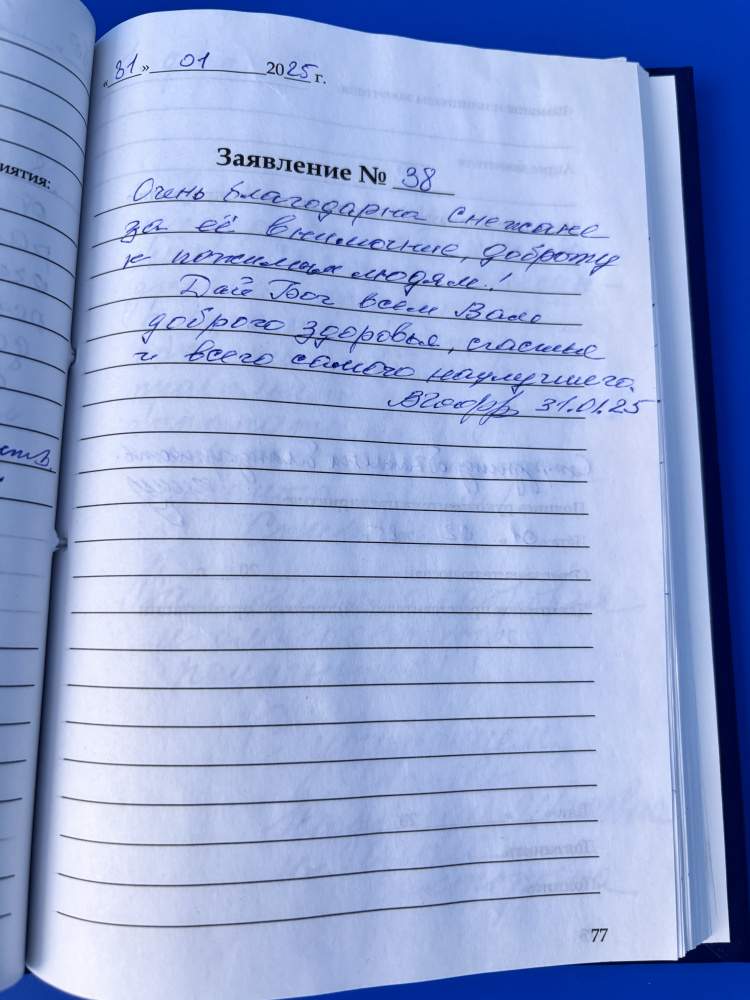 «31» 01 2025 г.
иятия:
Заявление № 38
Очень благодарна Снежане
за её внимание, доброту
к пожилым людям!
Дай Бог всем Вам
доброго здоровья, счастье
и всего самого наилучшего.
31.01.25
77